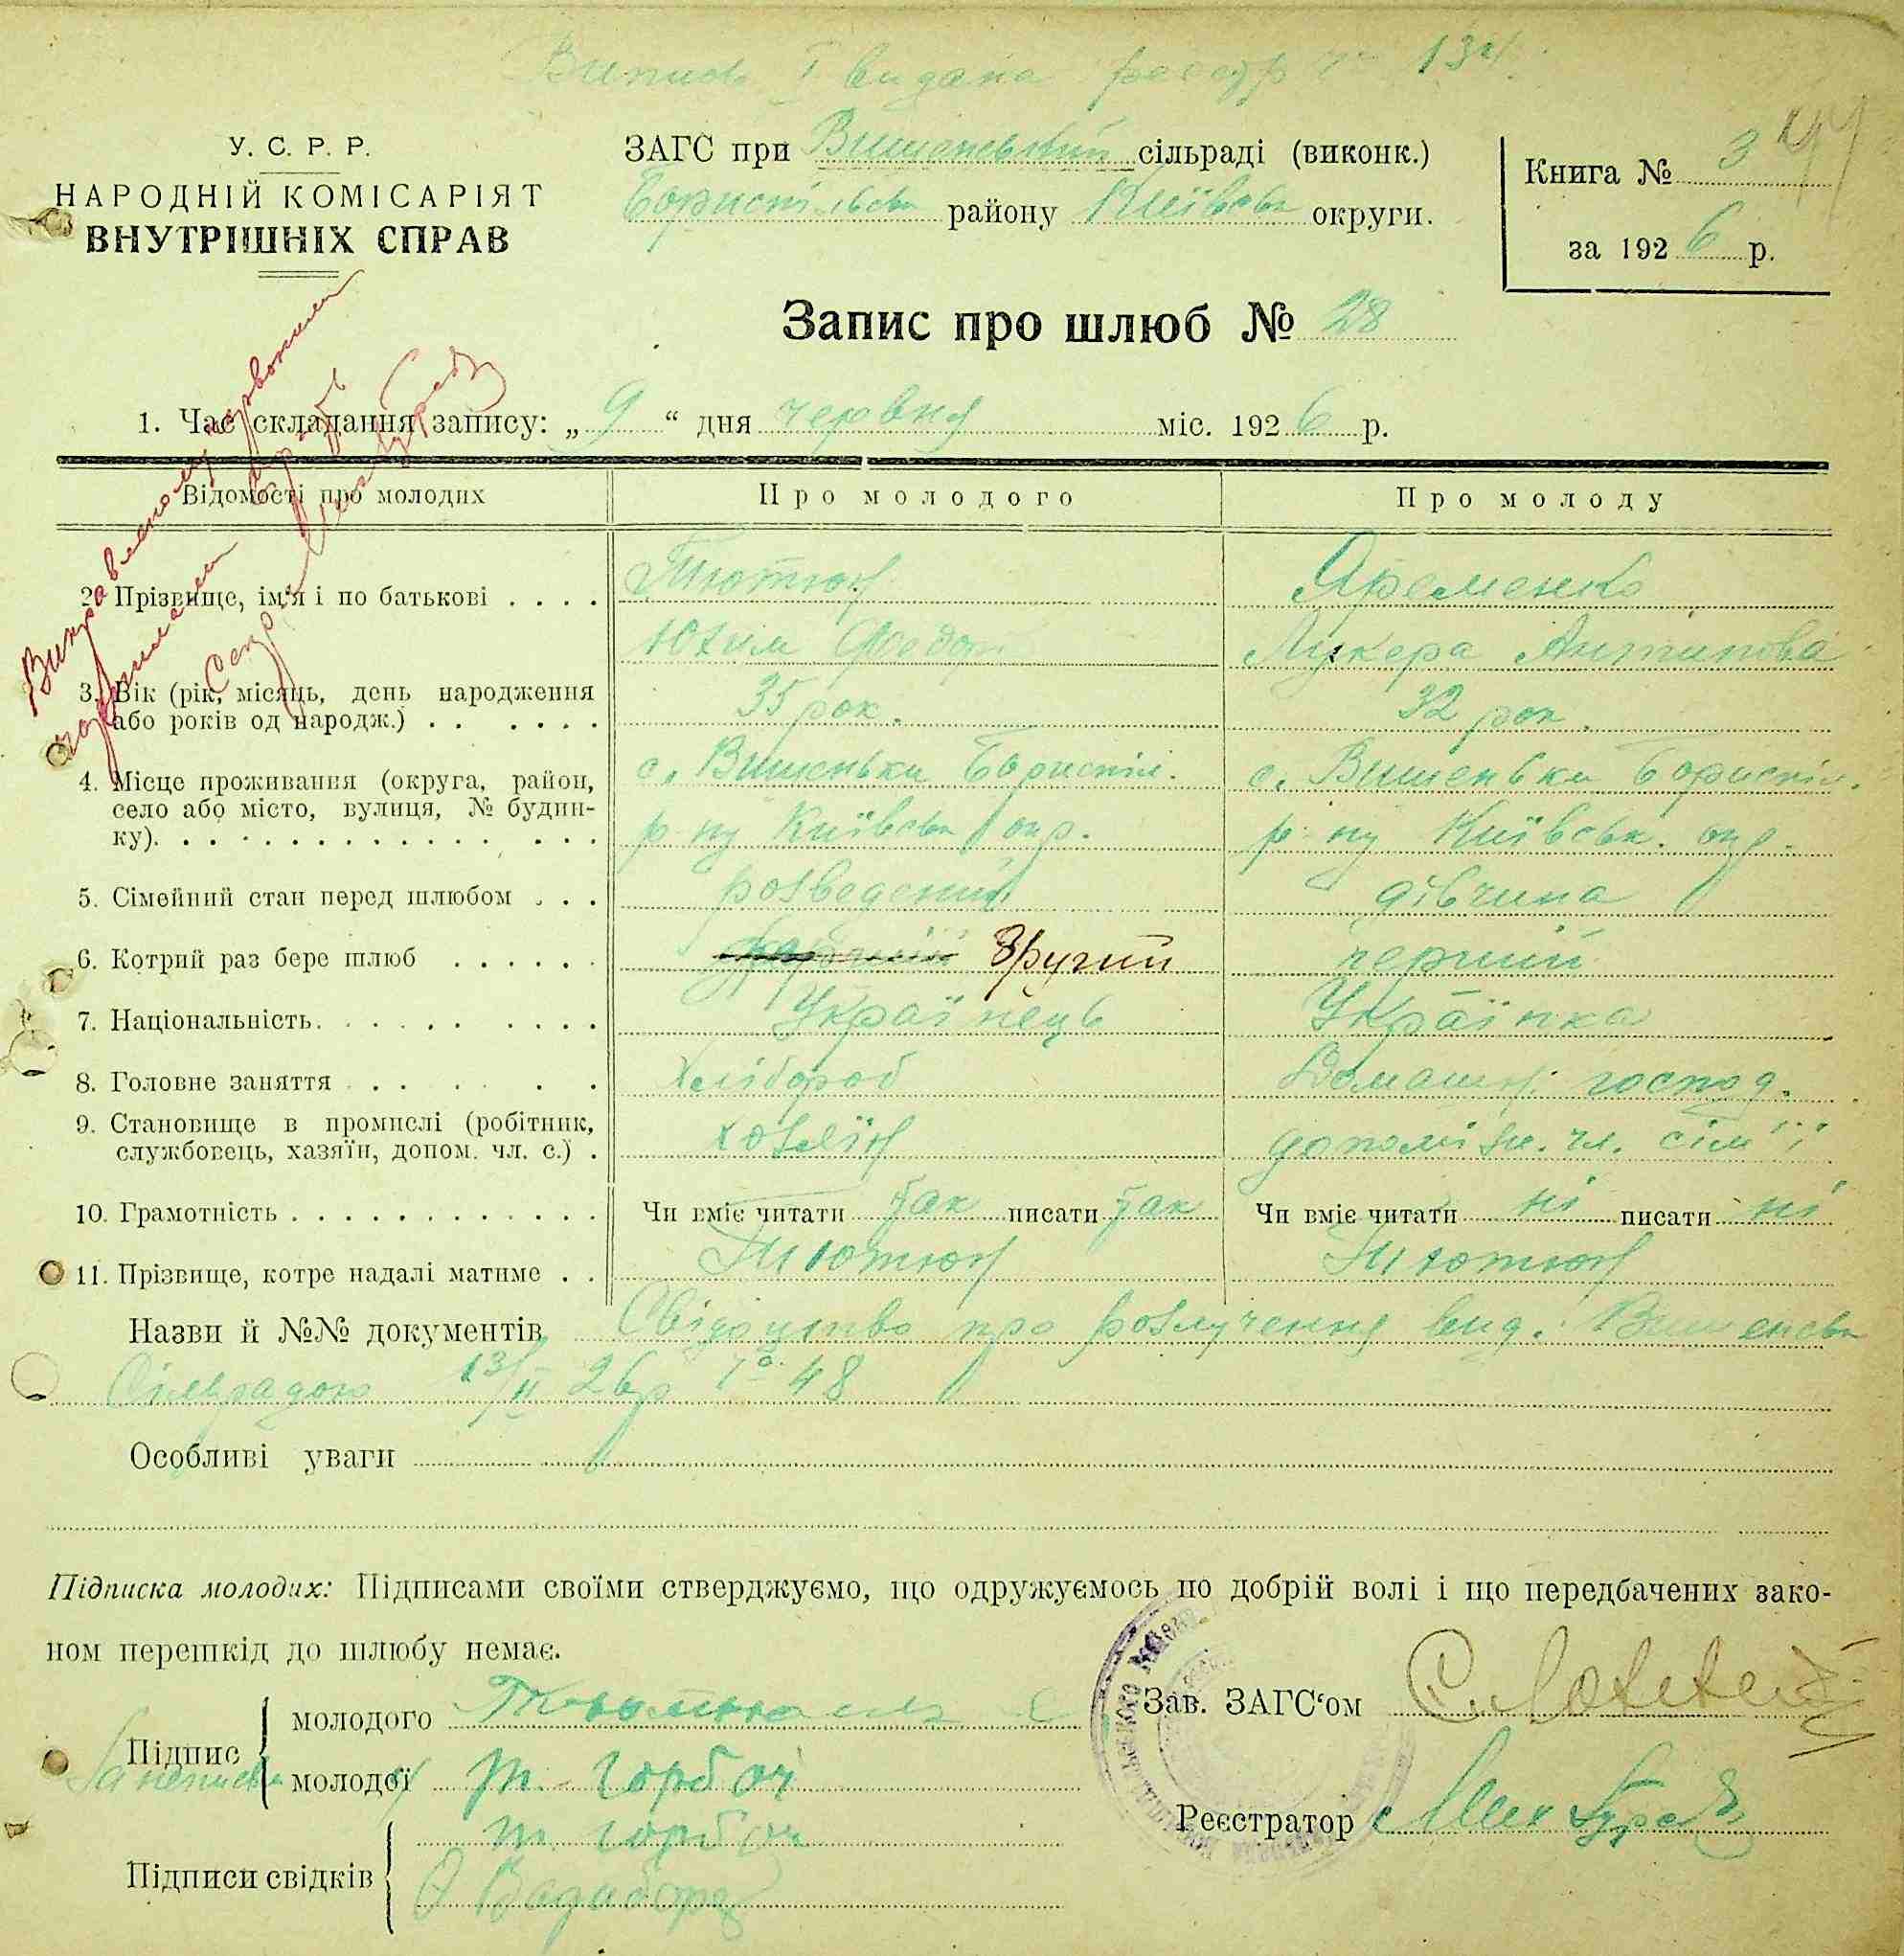 Випись I видана реєстр № 134.
У. С. Р. Р.
НАРОДНІЙ КОМІСАРІЯТ
ВНУТРІШНІХ СПРАВ
ЗАГС при Вишенській сільраді (виконк.)
Бориспільськ району Київськ округи.
Книга № 3
за 1926 р.
Запис про шлюб № 28
1. Час складання запису: „ 9 “ дня червня міс. 1926 р.
Відомості про молодих Про молодого Про молоду
2. Прізвище, ім'я і по батькові . . . . Тютюн Яременко
Юхим Федор Лукера Антипова
3. Вік (рік, місяць, день народження
або років од народж.) . . . . . . 35 рок. 32 рок.
4. Місце проживання (округа, район, с. Вишеньки Бориспіл. с. Вишеньки Бориспіл.
село або місто, вулиця, № будин-
ку). р-ну Київськ окр. р-ну Київськ. окр.
5. Сімейний стан перед шлюбом . . . розведений дівчина
6. Котрий раз бере шлюб . . . . . . Другий перший
7. Національність. Українець Українка
8. Головне заняття Хлібороб Домашн. господ.
9. Становище в промислі (робітник,
службовець, хазяїн, допом. чл. с.) . хозяїн допоміжн. чл. сім'ї
10. Грамотність Чи вміє читати так писати так Чи вміє читати ні писати ні
11. Прізвище, котре надалі матиме . . Тютюн Тютюн
Назви й №№ документів Свідоцтво про розлучення вид. Вишенськ
Сільрадою 13/II 26р № 48
Особливі уваги
Підписка молодих: Підписами своїми стверджуємо, що одружуємось по добрій волі і що передбачених зако-
ном перешкід до шлюбу немає.
Підпис
молодого
молодої т. Горбач
Підписи свідків
т. Горбач
Зав. ЗАГС‘ом
Реєстратор